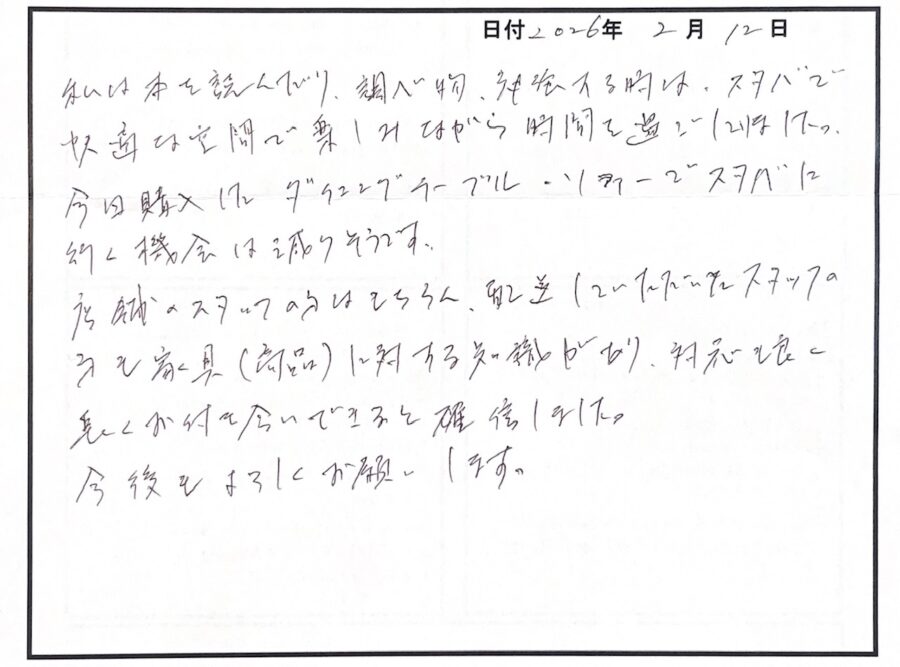 日付 2026年 2月 12日
私は本を読んだり、調べ物、勉強する時は、スタバで
快適な空間で楽しみながら時間を過ごしていました。
今日購入した ダイニングテーブル・ソファーでスタバに
行く機会は減りそうです。
店舗のスタッフの方はもちろん、配送していただいたスタッフの
方も家具(商品)に対する知識があり、対応も良く
長くお付き合いできると確信しました。
今後もよろしくお願いします。